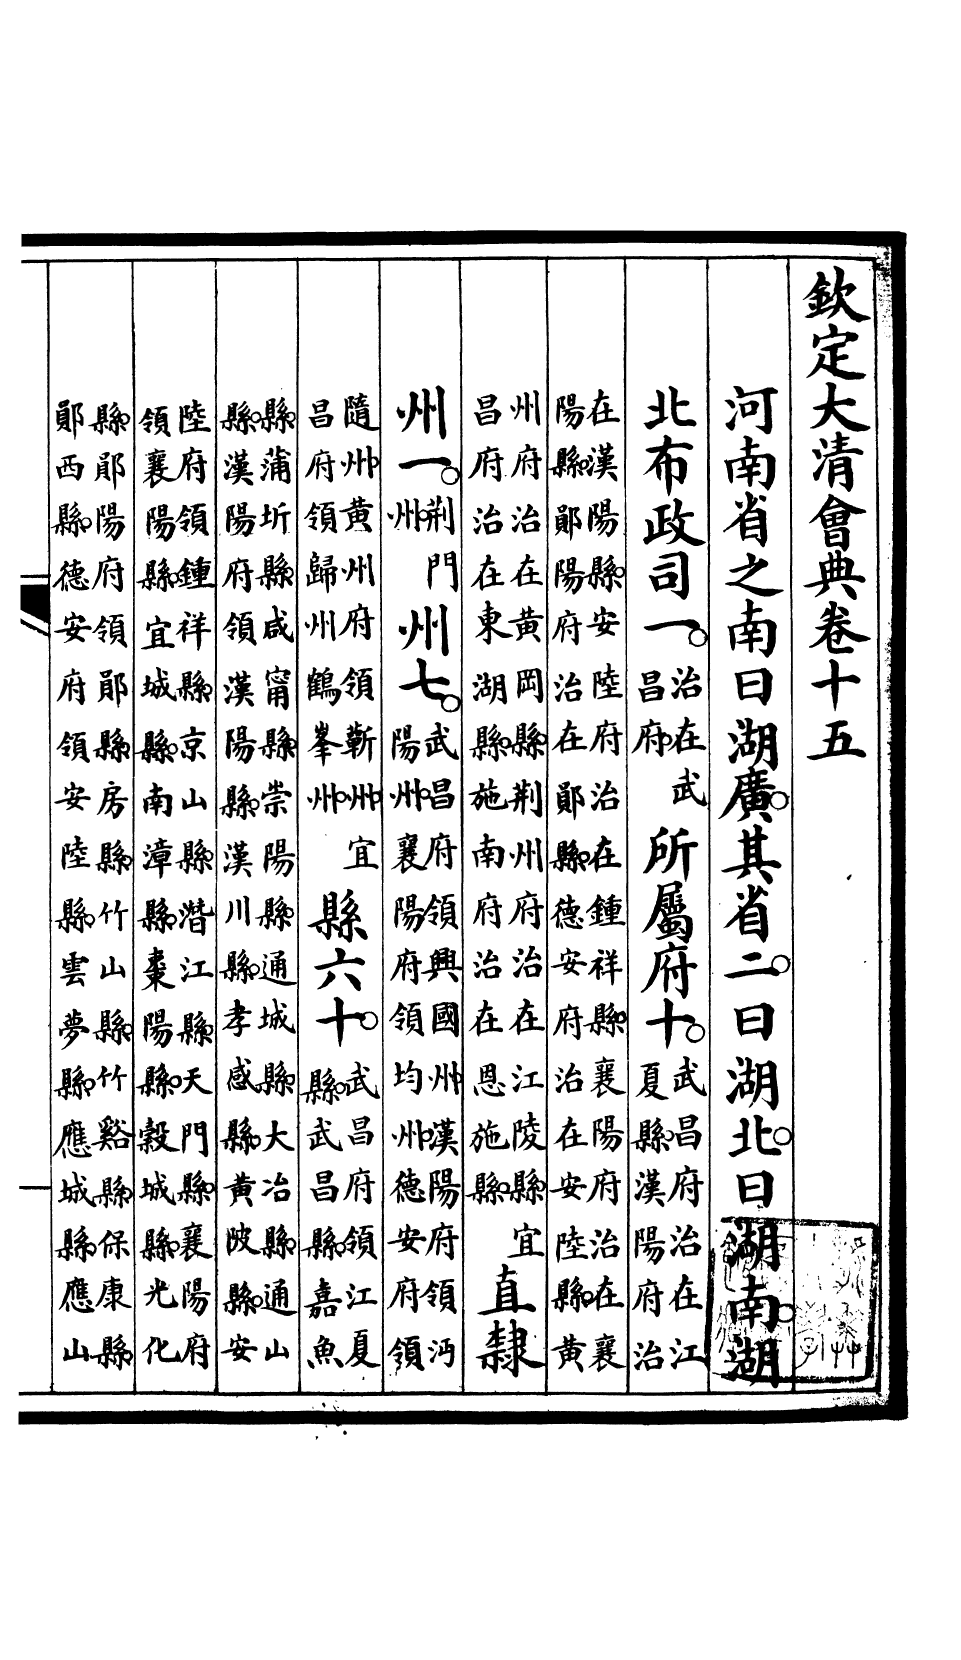 欽定大清會典卷十五
河南省之南曰湖廣。其省二。曰湖北。曰湖南。湖
北布政司一。治在武昌府。所屬府十。武昌府治在江夏縣。漢陽府治
在漢陽縣。安陸府治在鍾祥縣。襄陽府治在襄陽縣。鄖陽府治在鄖縣。德安府治在安陸縣。黃
州府治在黃岡縣。荆州府治在江陵縣。宜昌府治在東湖縣。施南府治在恩施縣。直隸
州一。荆門州。州七。武昌府領興國州。漢陽府領沔陽州。襄陽府領均州。德安府領
隨州。黃州府領蘄州。宜昌府領歸州鶴峯州。縣六十。武昌府領江夏縣。武昌縣。嘉魚
縣。蒲圻縣。咸甯縣。崇陽縣。通城縣。大冶縣。通山縣。漢陽府領漢陽縣。漢川縣。孝感縣。黃陂縣。安
陸府領鍾祥縣。京山縣。潛江縣。天門縣。襄陽府領襄陽縣。宜城縣。南漳縣。棗陽縣。穀城縣。光化
縣。鄖陽府領鄖縣。房縣。竹山縣。竹谿縣。保康縣。鄖西縣。德安府領安陸縣。雲夢縣。應城縣。應山